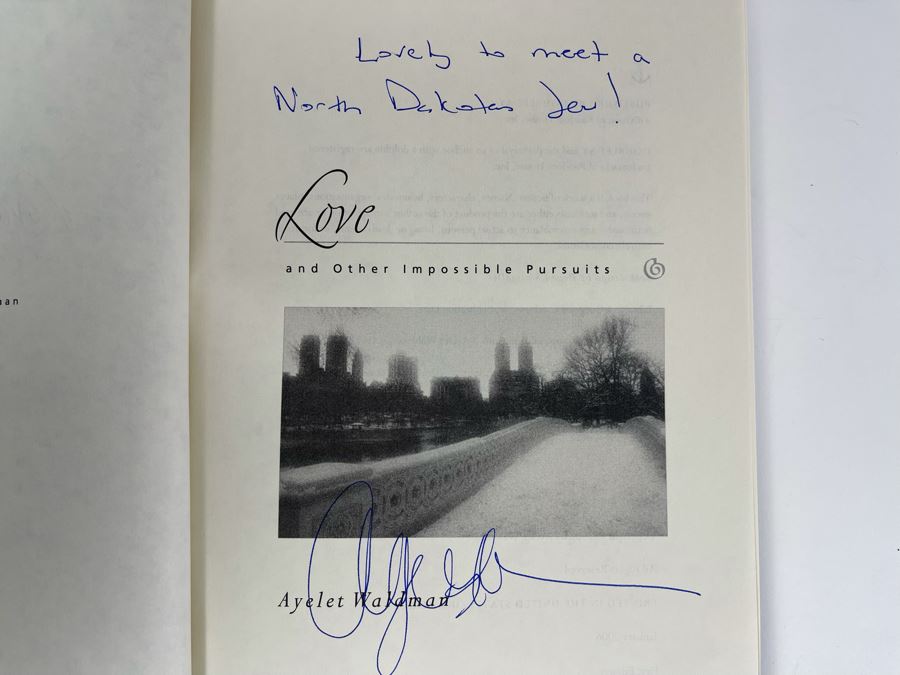 Lovely to meet a
North Dakotan Jew!
Love
and Other Impossible Pursuits
Ayelet Waldman